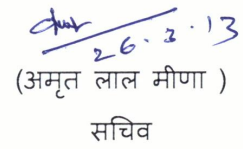 26.3.13
(अमृत लाल मीणा )
सचिव